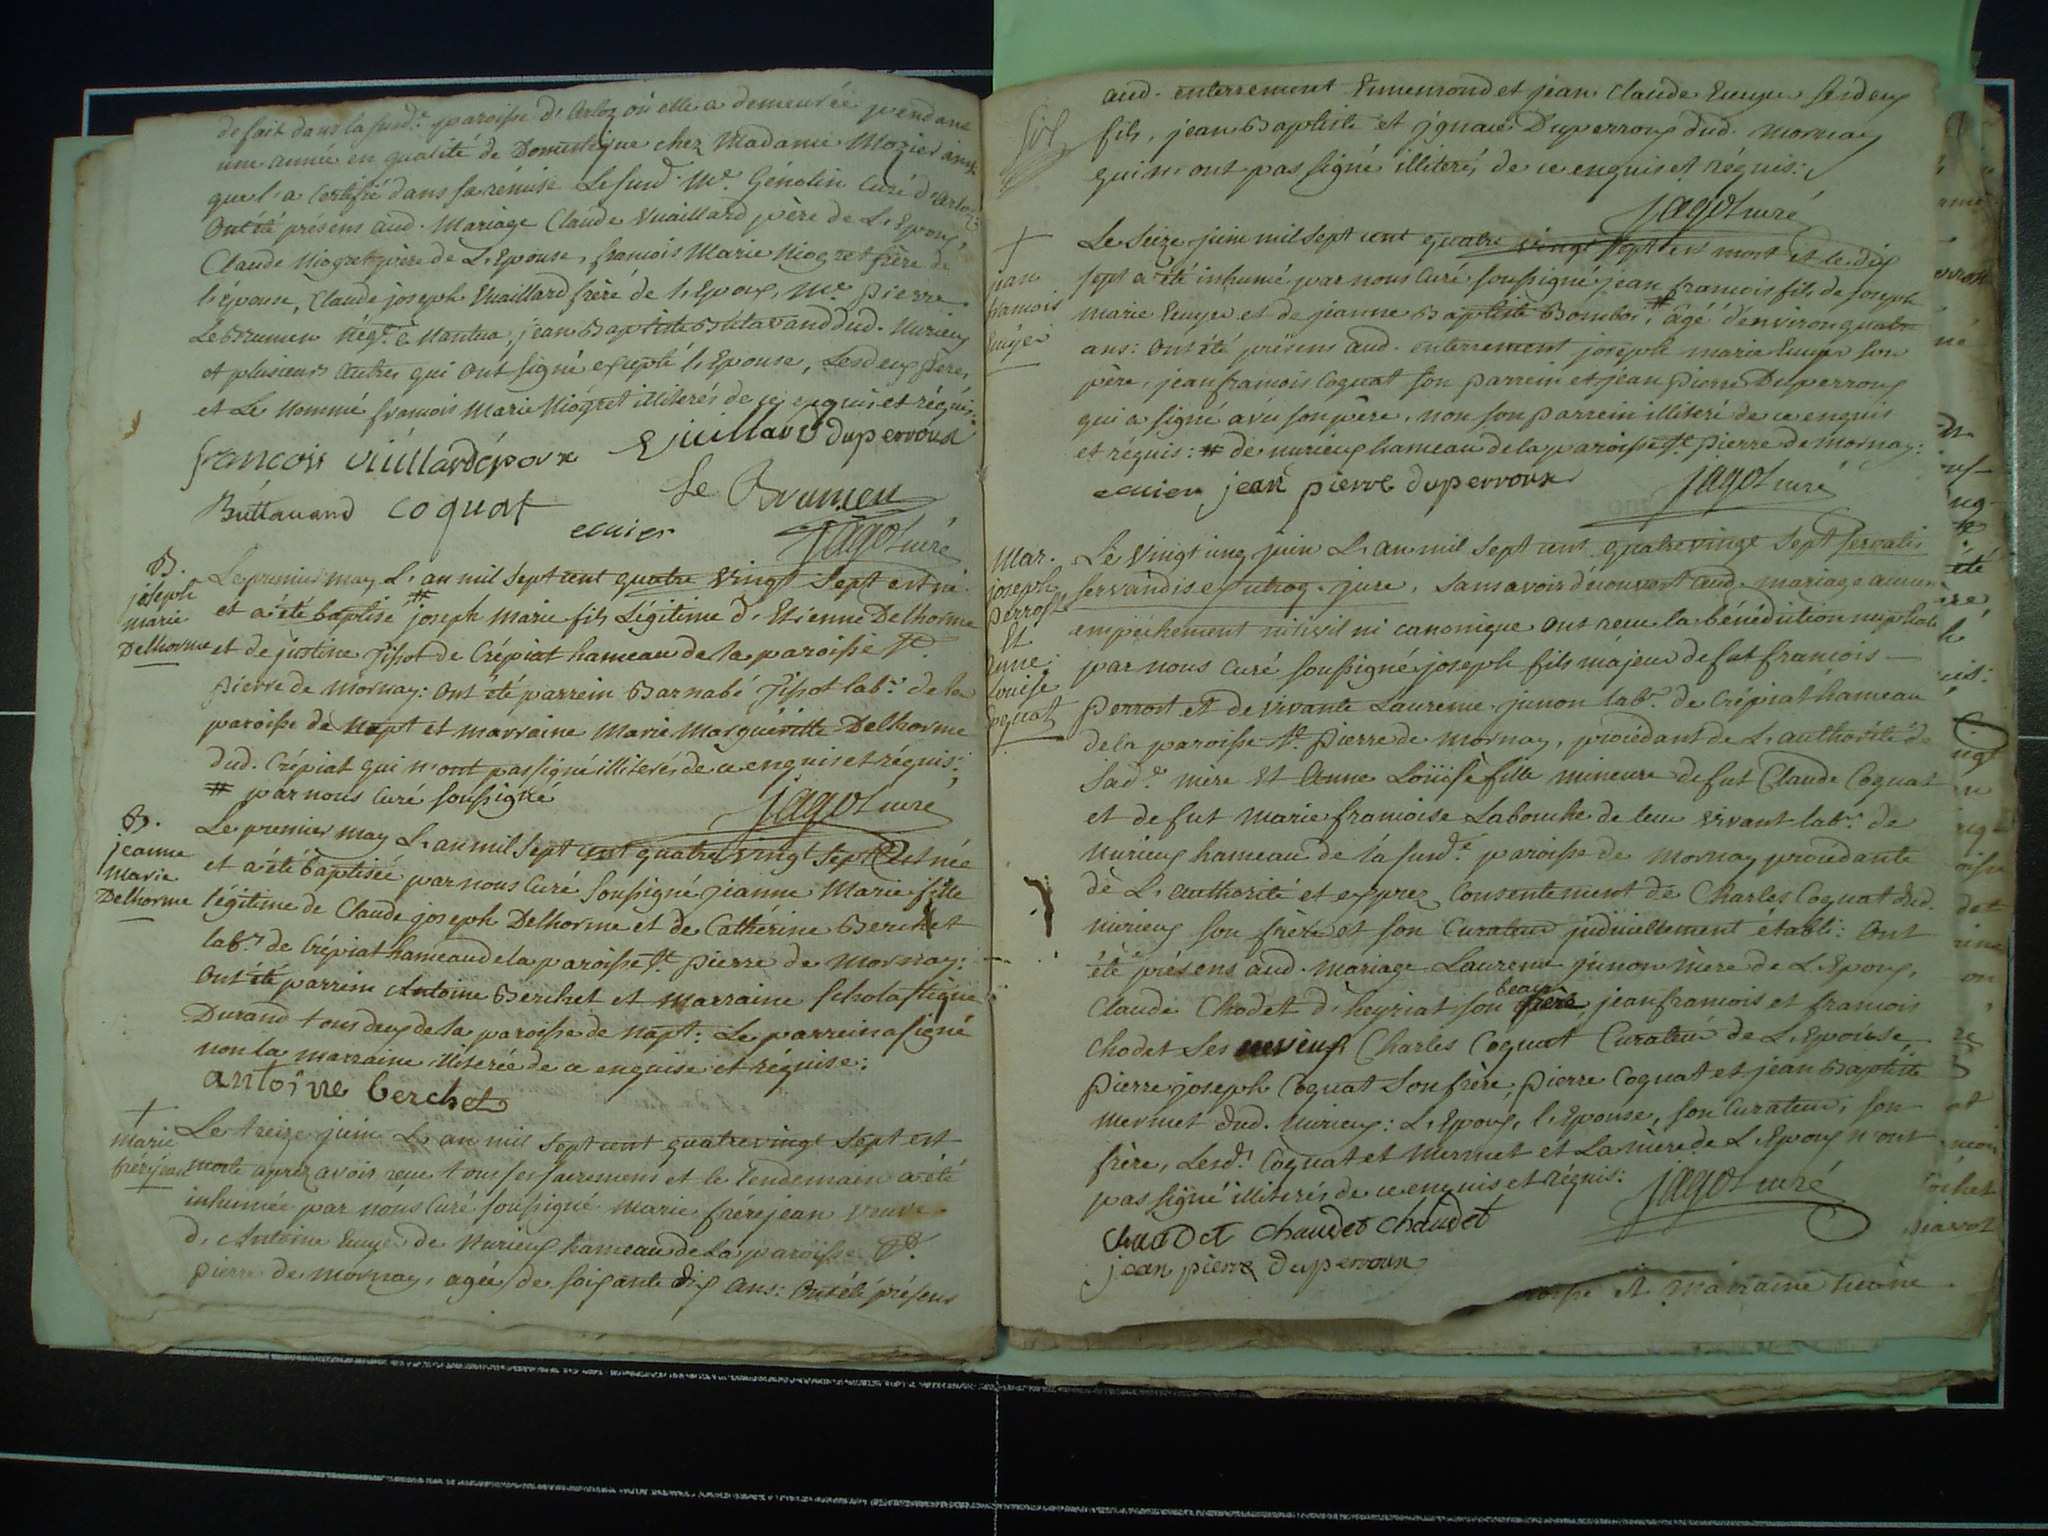 de fait dans la susd.e paroisse d'Arloz où elle a demeurée pendant
une année en qualité de Domestique chez Madame Mozier ainsy
que l'a Certifié dans sa rémise Le susd. Mr. Génolin Curé d'Arloz:
Ont été présens aud. Mariage Claude Vuaillard père de L'Epoux,
Claude Niogret père de L'Epouse, francois Marie Niogret frère de
l'épouse, Claude joseph Vuaillard frère de l'Epoux, Mr. Pierre
Le Brumen Négt. à Nantua, jean Baptiste Butavand dud. Nurieux
et plusieurs autres qui ont signé excepté l'Epouse, Lesdeux pères,
et Le Nommé francois Marie Niogret illiterés de ce enquis et réquis:
francois vuillard époux vuillard duperroux
Buttavand coquat Le Brumen
ecuier jagot curé
B.
joseph
marie
Delhorme
Le premier may L'an mil sept cent quatre vingt sept est né
et a été baptisé # joseph Marie fils Légitime d'Etienne Delhorme
et de justine Tissot de Crépiat hameau de la paroisse St.
pierre de Mornay: Ont été parrein Barnabé Tissot labr. de la
paroisse de Napt et marraine Marie Marguéritte Delhorme
dud. Crépiat qui n'ont pas signé illiterés de ce enquis et réquis:
# par nous Curé soussigné jagot curé
B.
jeanne
Marie
Delhorme
Le premier may L'an mil sept cent quatre vingt sept Est née
et a été baptisée par nous Curé soussigné jeanne Marie fille
légitime de Claude joseph Delhorme et de Cathérine Berchet
labrs. de Crépiat hameau de la paroisse St. pierre de Mornay:
Ont été parrein Antoine Berchet et Marraine Scholastique
Durand tous deux de la paroisse de Napt: Le parrein a signé
non la marraine illiterée de ce enquise et réquise:
antoine berchet
+
Marie
fréréjean
Le treize juin L'an mil sept cent quatre vingt sept est
morte aprez avoir recu tous ses sacremens et le lendemain a été
inhumée par nous Curé soussigné Marie fréréjean veuve
d'Antoine Ecuyer de Nurieux hameau de la paroisse St.
pierre de Mornay, agée de soixante dix ans: Ont été présens
aud. enterrement Ennemond et jean Claude Ecuyer ses deux
fils, jean Baptiste et jgnace Duperroux dud. Mornay
qui n'ont pas signé illiterés de ce enquis et réquis:
jagot curé
+
jean
francois
Ecuyer
Le seize juin mil sept cent quatre vingt sept est mort et le dix
sept a été inhumé par nous Curé soussigné jean francois fils de joseph
marie Ecuyer et de jeanne Baptiste Bombois, # âgé d'environ quatre
ans: Ont été présens aud. enterrement joseph marie Ecuyer son
père, jean francois Coquat son parrein et jean Pierre Duperroux
qui a signé avec son père, non son parrein illiteré de ce enquis
et réquis: # de nurieux hameau de la paroisse St. pierre de mornay:
ecuier jean pierre duperroux jagot curé
Mar.
joseph
perrost
Et
anne
Louise
Coquat
Le Vingt unq juin L'an mil sept cent quatre vingt sept servatis
servandis ex utroq. jure, sans avoir découvert aud. mariage aucun
empéchement ni civil ni canonique ont recu la bénédiction nuptiale
par nous Curé soussigné joseph fils májeur de fut francois
perrost et de vivante Laurence junon labr. de Crépiat hameau
de la paroisse St. pierre de Mornay, procédant de L'authorité de
sad.e mère Et Anne Loüise fille mineure de fut Claude Coquat
et de fut Marie francoise Labouche de leur vivant labrs. de
Nurieux hameau de la susd.e paroisse de Mornay procédante
de L'authorité et exprez Consentement de Charles Coquat dud.
nurieux son frère et son Curateur judiciellement établi: Ont
été présens aud. mariage Laurence junon mère de L'Epoux,
Claude Chodet d'heyriat son beau frère, jean francois et francois
Chodet ses neveux Charles Coquat Curateur de L'Epouse,
pierre joseph Coquat son frère, pierre Coquat et jean Baptiste
Mermet dud. Nurieux: L'Epoux, l'Epouse, son Curateur, son
frère, Lesds. Coquat et Mermet et La mère de L'Epoux n'ont
pas signé illiterés de ce enquis et réquis: jagot curé
chaudet chaudet chaudet
jean pierre duperroux
et marraine